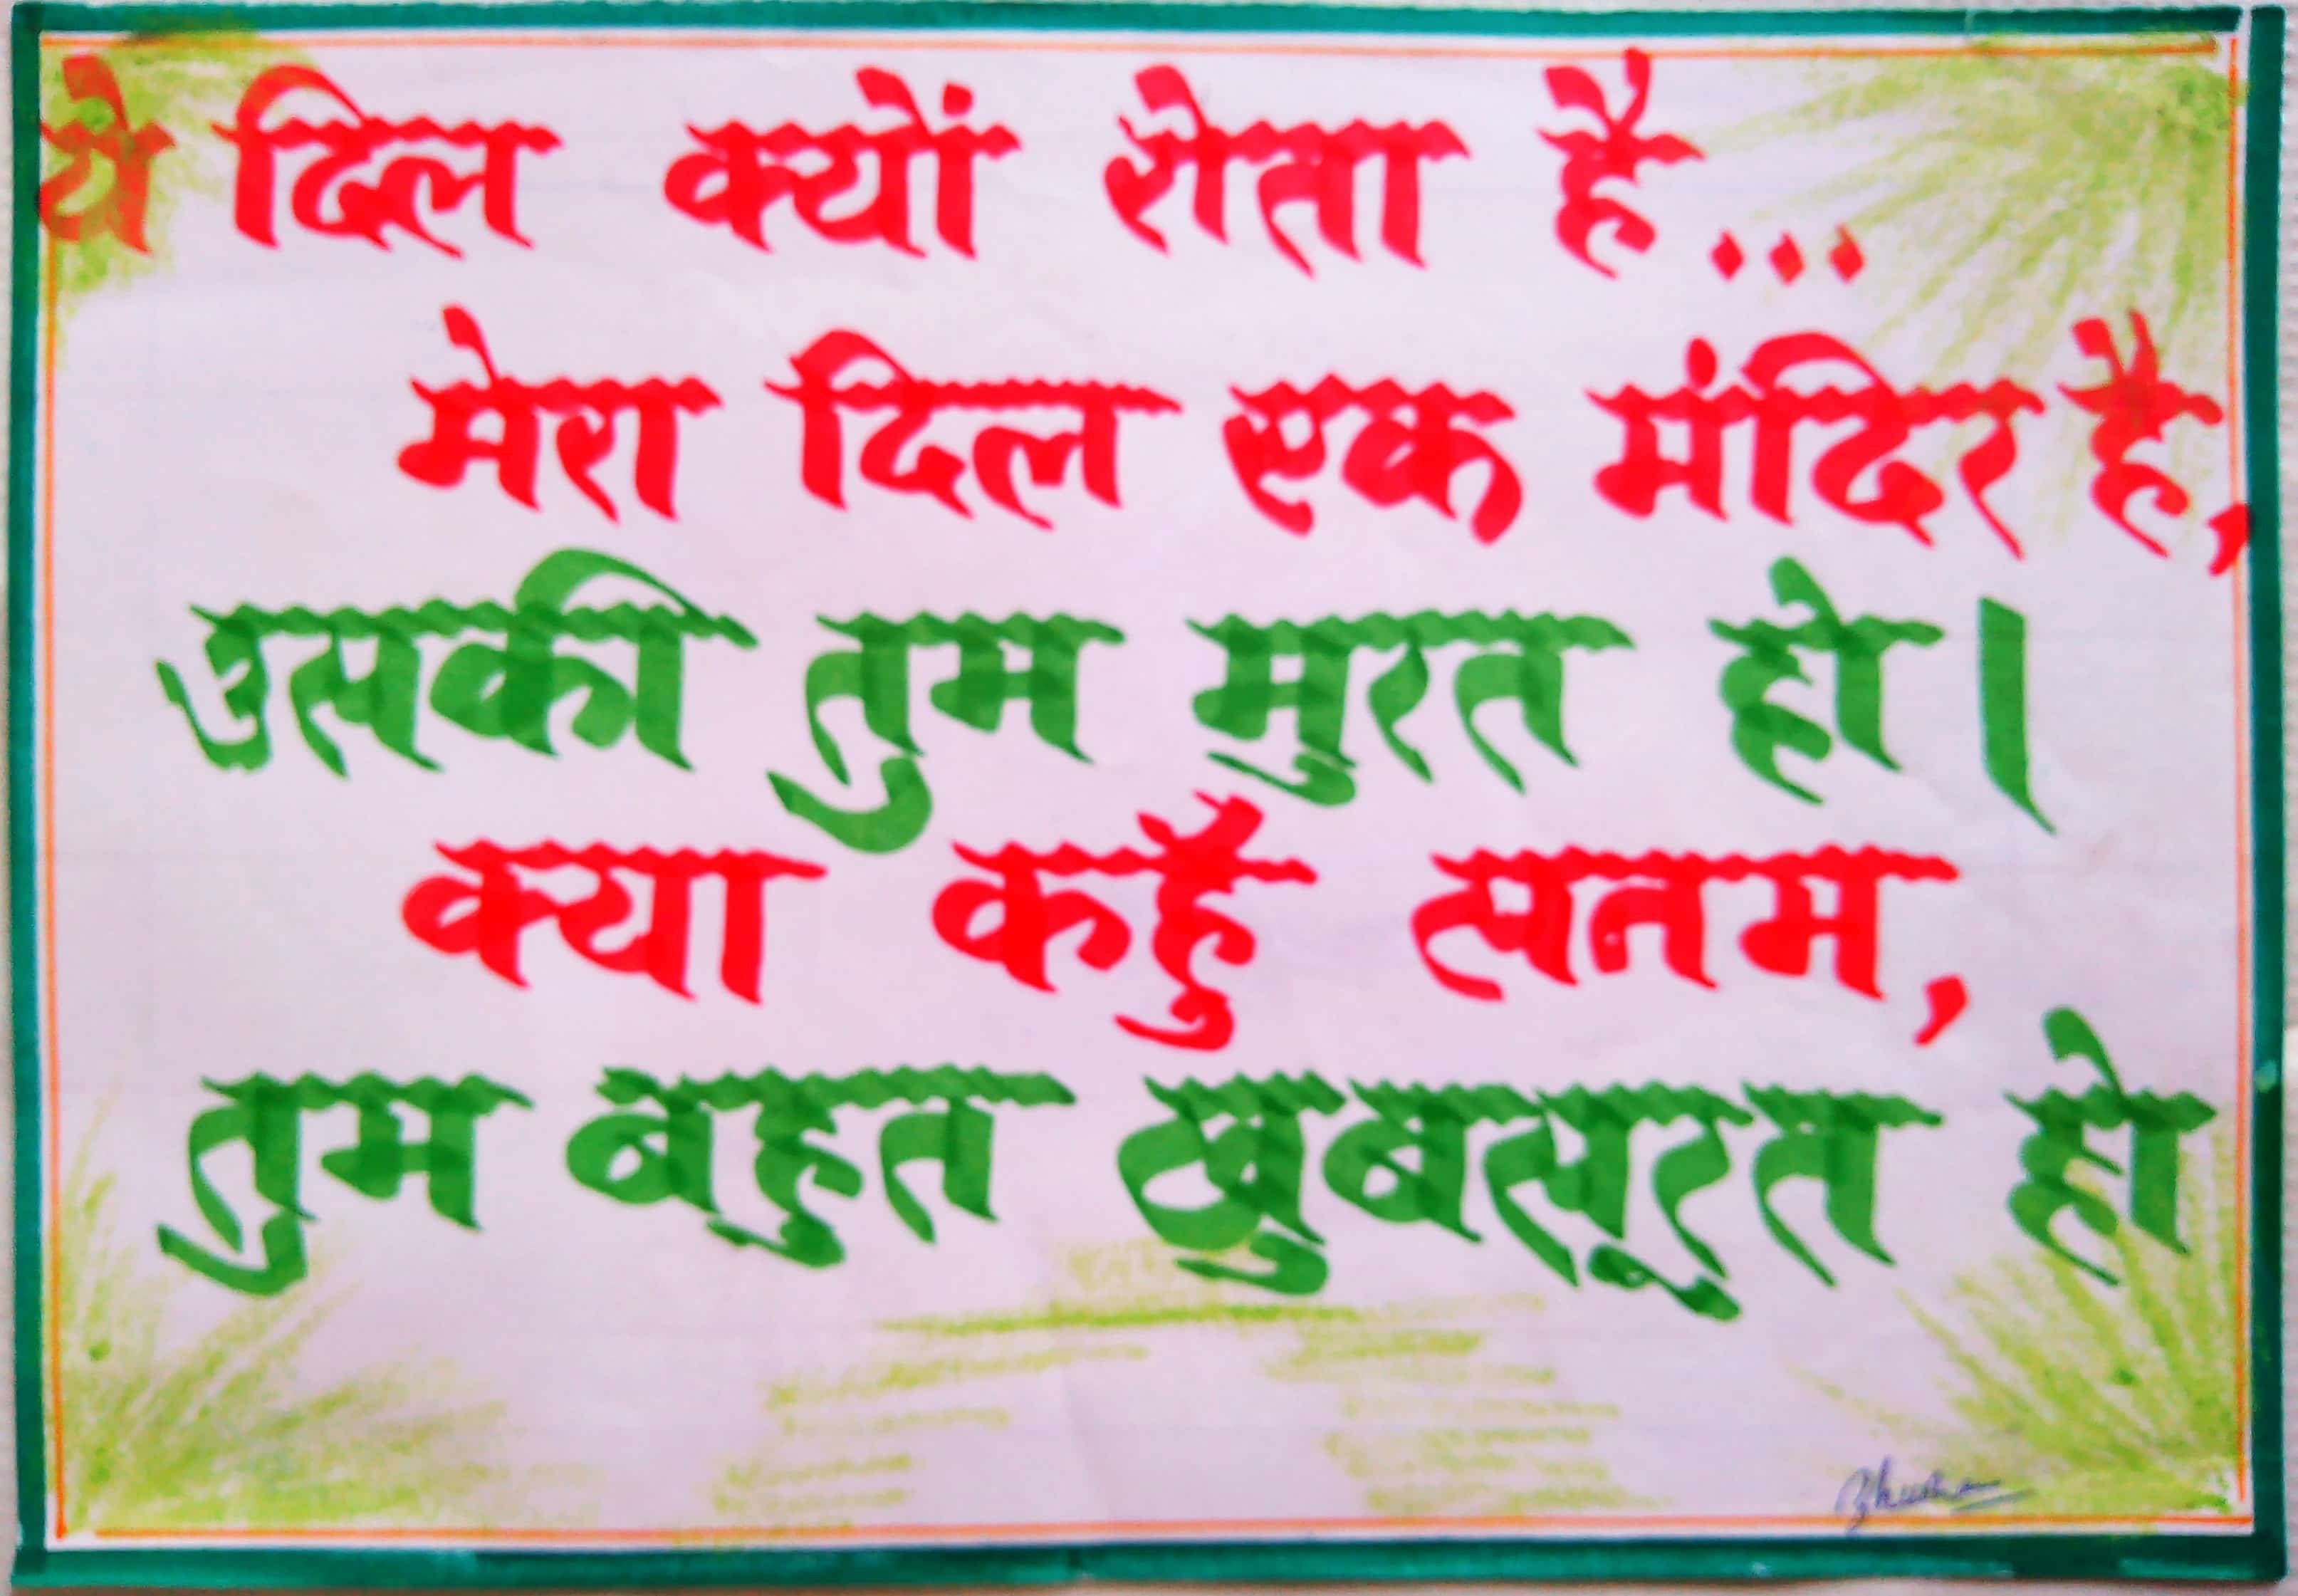 ये दिल क्यों रोता है...
मेरा दिल एक मंदिर है,
उसकी तुम मुरत हो।
क्या कहुँ सनम,
तुम बहुत खुबसूरत हो